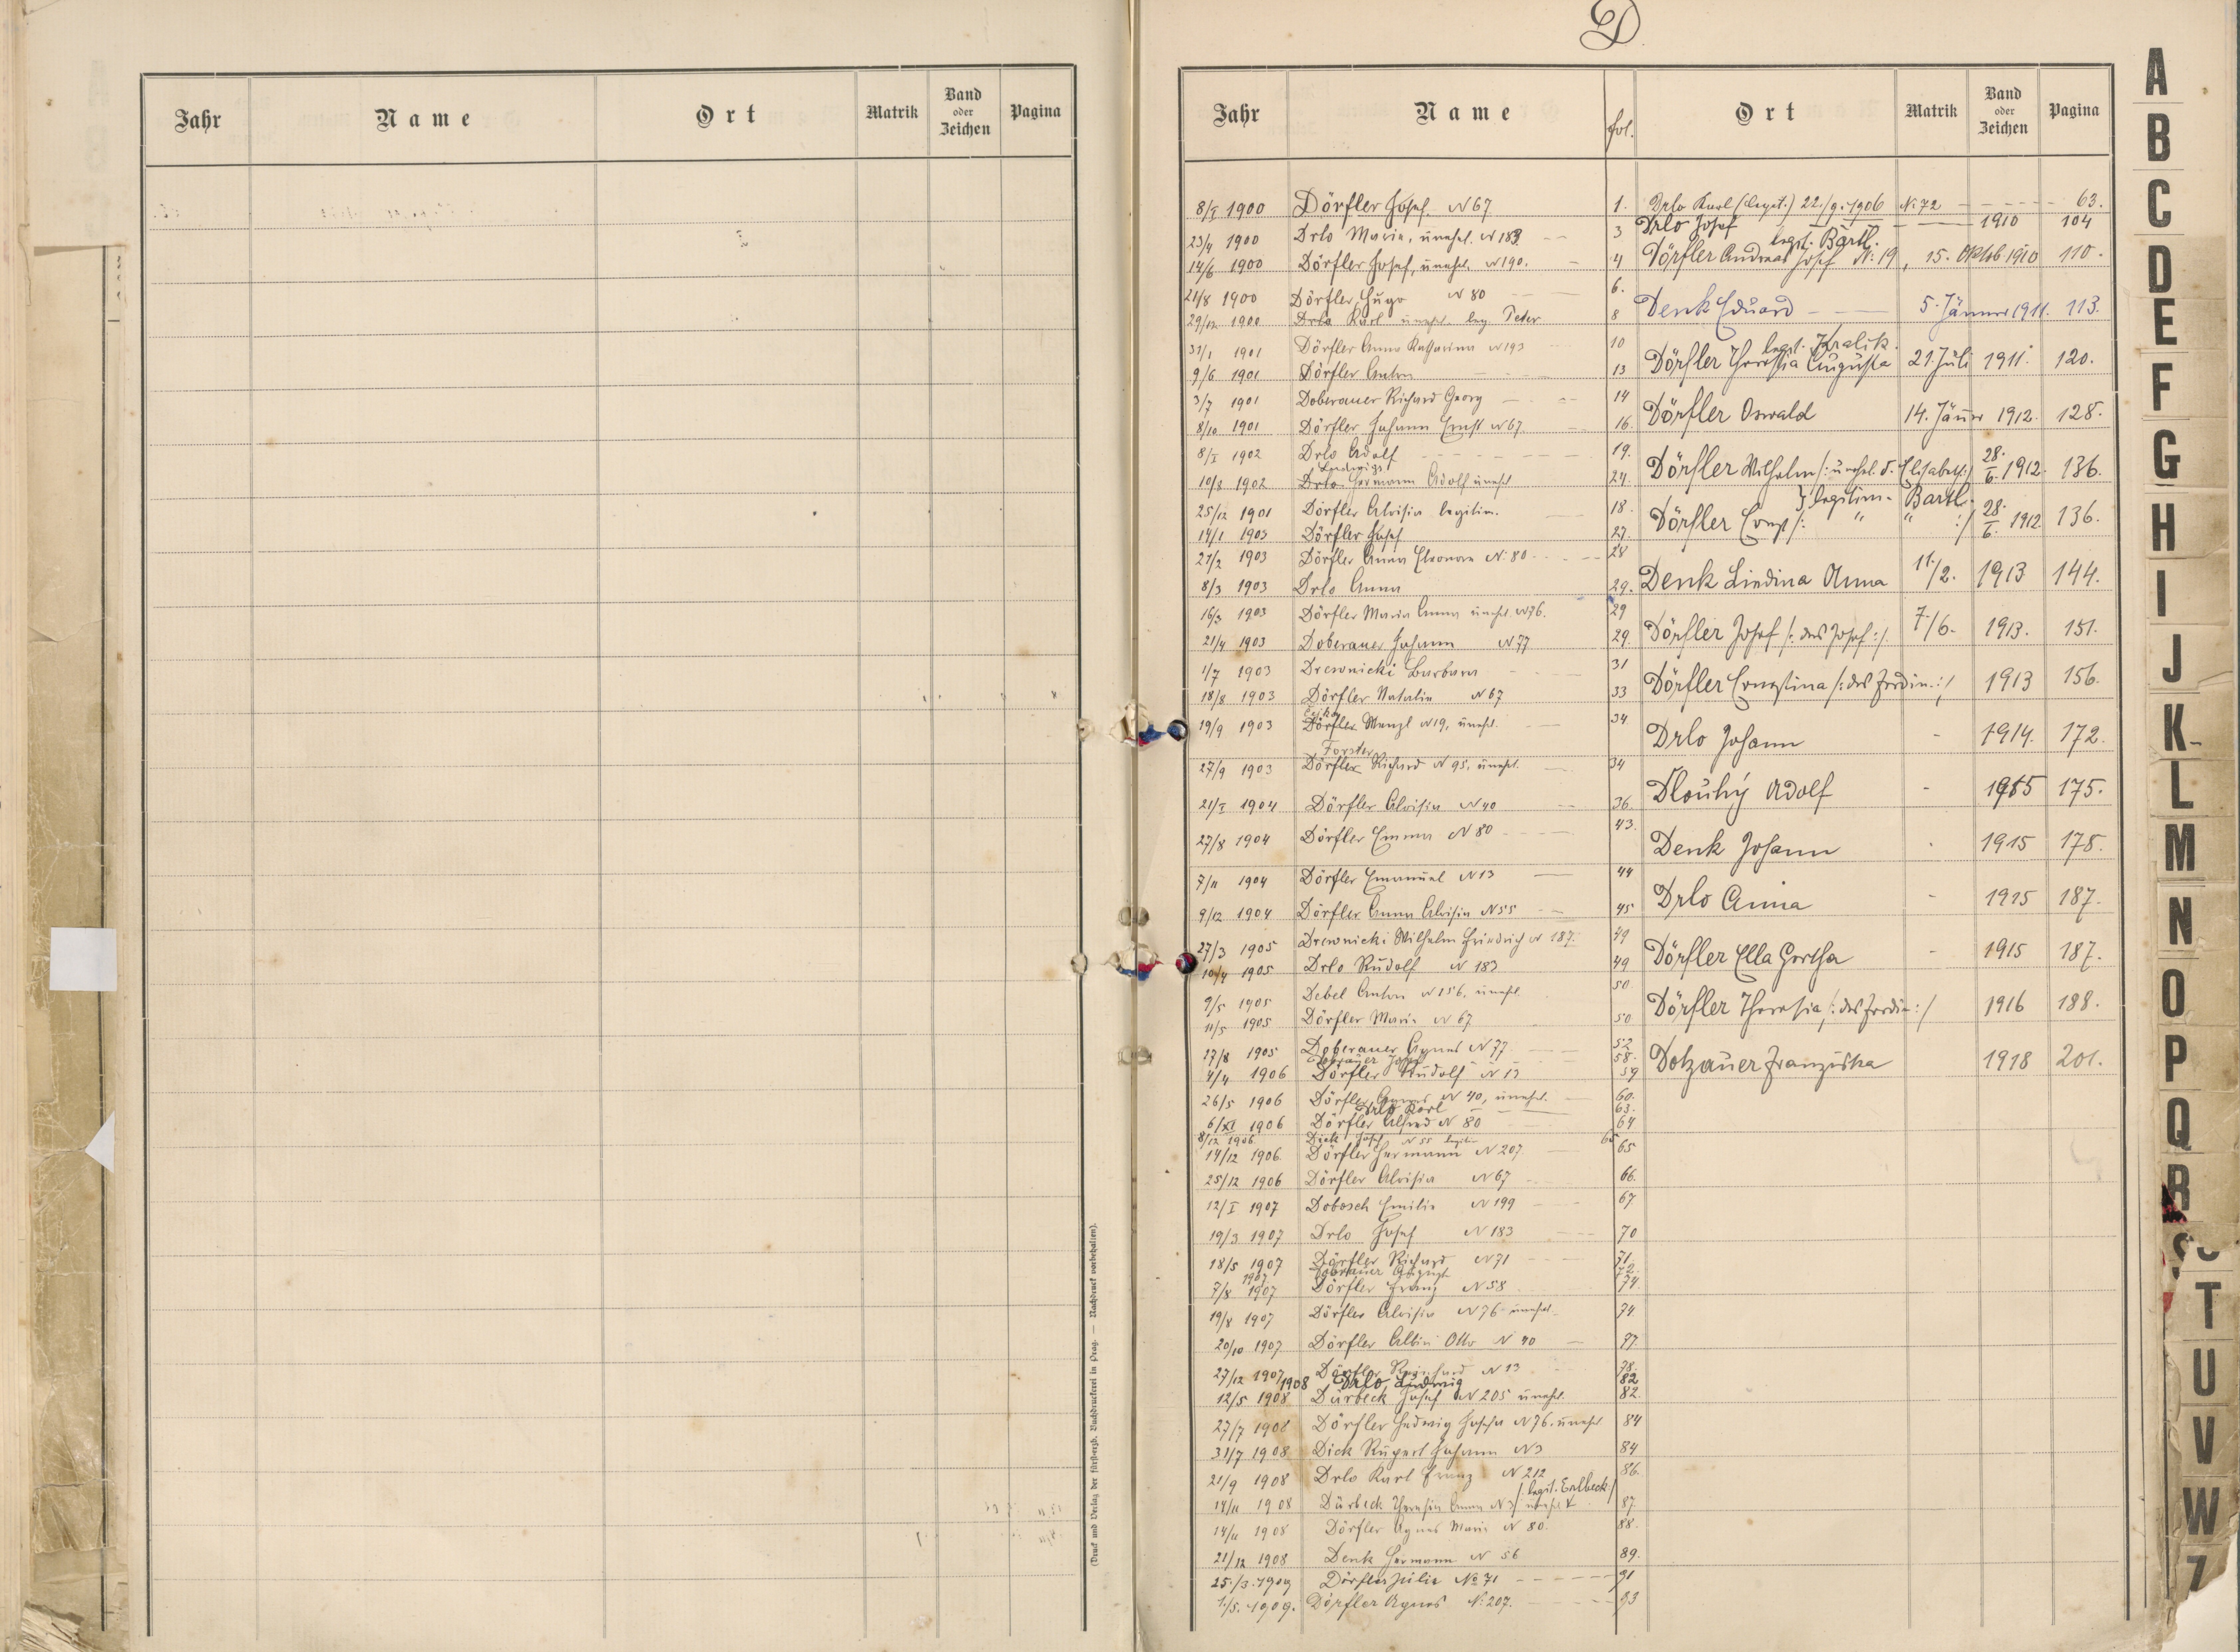 D
Jahr Name Ort Matrik Band oder Zeichen Pagina
(Druck und Verlag der fürsterzb. Buchdruckerei in Prag. — Nachdruck vorbehalten).
Jahr Name fol. Ort Matrik Band oder Zeichen Pagina
8/I 1900 Dörfler Josef. N 67 1.
23/4 1900 Drlo Maria, unehel. N 183 3
14/6 1900 Dörfler Josef, unehel. N 190. 4
21/8 1900 Dörfler Hugo N 80 6.
29/12 1900 Drlo Karl unehel. leg. Peter 8
31/1 1901 Dörfler Anna Katharina N 193 10
9/6 1901 Dörfler Anton 13
3/7 1901 Doberauer Richard Georg 14
8/10 1901 Dörfler Johann Ernst N 67. 16.
8/I 1902 Drlo Adolf 19.
Ludwigs
10/8 1902 Drlo Hermann Adolf unehel 24.
25/12 1901 Dörfler Aloisia legitim. 18.
14/1 1903 Dörfler Josef 27.
21/2 1903 Dörfler Anna Eleonore N. 80 28
8/3 1903 Drlo Anna 29.
16/3 1903 Dörfler Maria Anna unehel. N 76. 29
21/4 1903 Doberauer Johann N 77 29.
1/7 1903 Drewnicki Barbara 31
18/8 1903 Dörfler Natalie N 67 33
19/9 1903 Dörfler Wenzl N 19, unehel. 34
Forster
27/9 1903 Dörfler Richard N 95, unehel. 34
21/I 1904 Dörfler Aloisia N 40 36
27/8 1904 Dörfler Emma N 80 43.
7/11 1904 Dörfler Emanuel N 13 44
9/12 1904 Dörfler Anna Aloisia N 55 45
27/3 1905 Drewnicki Wilhelm Friedrich N 187. 49
10/4 1905 Drlo Rudolf N 183 49
9/5 1905 Debel Anton N 156, unehel. 50
11/5 1905 Dörfler Marie N 67 50
17/8 1905 Doberauer Agnes N 77 52
58.
4/4 1906 Dörfler Rudolf N 13 59
26/5 1906 Dörfler Agnes N 40, unehel. 60.
Drlo Karl 63.
6/XI 1906 Dörfler Alfred N 80 64
8/12 1906. Dick Josef N 55 legitim 65
14/12 1906. Dörfler Hermann N 207 65
25/12 1906 Dörfler Aloisia N 67 66.
12/I 1907 Dobosch Emilie N 199 67
19/3 1907 Drlo Josef N 183 70
18/5 1907 Dörfler Richard N 71 71.
1907 Doberauer August 72.
7/8 1907 Dörfler Franz N 58 74.
19/8 1907 Dörfler Aloisia N 76 unehel. 74
20/10 1907 Dörfler Albin Otto N 40 77.
27/12 1907 Dörfler Reinhard N 13 78.
1908 Drlo Ludwig 82
12/5 1908 Dürbeck Josef N 205 unehel. 82.
27/7 1908 Dörfler Hedwig Josefa N 76. unehel 84
31/7 1908 Dick Rupert Johann N 3 84
21/9 1908 Drlo Karl Franz N 212 86.
/: legit. Erlbeck/
14/11 1908 Dürbeck Theresia Anna N 3 unehel 87.
14/11 1908 Dörfler Agnes Marie N 80. 88.
21/12 1908 Denk Hermann N 56 89.
25./3. 1909 Dörfler Julie No 71 91
1./5. 1909. Dörfler Agnes N: 207. 93
Drlo Karl (legit.) 22./9. 1906 N: 72 63.
Drlo Josef 1910 104
legit. Bartl.
Dörfler Andreas Josef N: 19, 15. Oktob 1910 110.
Denk Eduard 5. Jänner 1911. 113.
legit. Kralik.
Dörfler Theresia Augusta 21. Juli 1911. 120.
Dörfler Oswald 14. Jänner 1912. 128.
Dörfler Wilhelm /: unehel. d. Elisabeth :/ 28./6. 1912. 136.
} legitim. Bartl.
Dörfler Ernst /: " " :/ 28./6. 1912 136.
Denk Liedina Anna 11./2. 1913 144.
Dörfler Josef /: des Josef :/. 7./6. 1913. 151.
Dörfler Ernestina /: des Ferdin. :/ 1913 156.
Drlo Johann 1914. 172.
Dlouhý Adolf 1915 175.
Denk Johann 1915 178.
Drlo Anna 1915 187.
Dörfler Ella Gertha 1915 187.
Dörfler Theresia /: des Ferdin :/ 1916 188.
Dotzauer Franziska 1918 201.
A
B
C
D
E
F
G
H
I
J
K
L
M
N
O
P
Q
R
S
T
U
V
W
Z